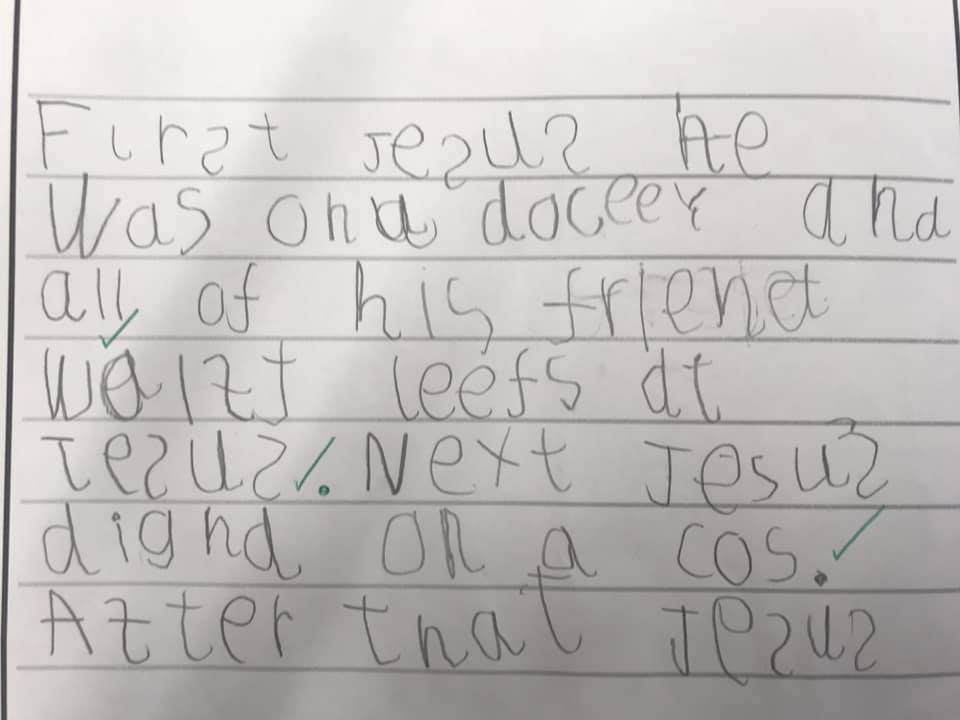 First Jesus he
Was ona doceer and
all of his frienet
waizt leefs at
Jezus. Next Jesus
dignd on a cos.
Azter that Jezus